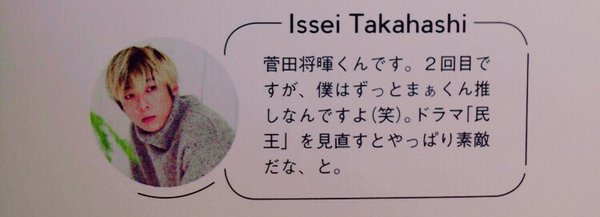 Issei Takahashi
菅田将暉くんです。２回目で
すが、僕はずっとまぁくん推
しなんですよ(笑)。ドラマ「民
王」を見直すとやっぱり素敵
だな、と。